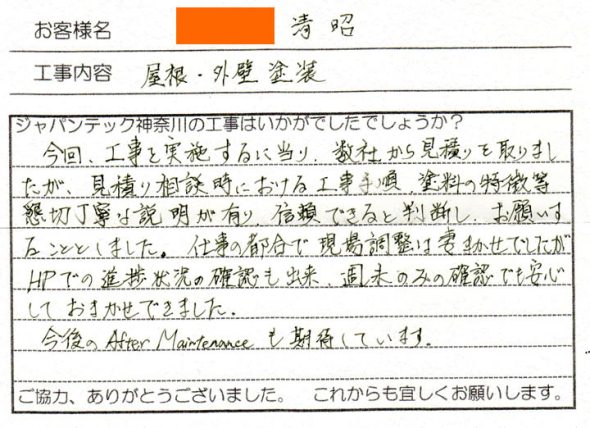 お客様名 清昭
工事内容 屋根・外壁塗装
ジャパンテック神奈川の工事はいかがでしたでしょうか?
今回、工事を実施するに当り、数社から見積りを取りまし
たが、見積り相談時における工事手順、塗料の特徴等
懇切丁寧な説明が有り、信頼できると判断し、お願いす
ることとしました。仕事の都合で現場調整は妻まかせでしたが
HPでの進捗状況の確認も出来、週末のみの確認でも安心
しておまかせできました。
今後のAfter Maintenanceも期待しています。
ご協力、ありがとうございました。 これからも宜しくお願いします。